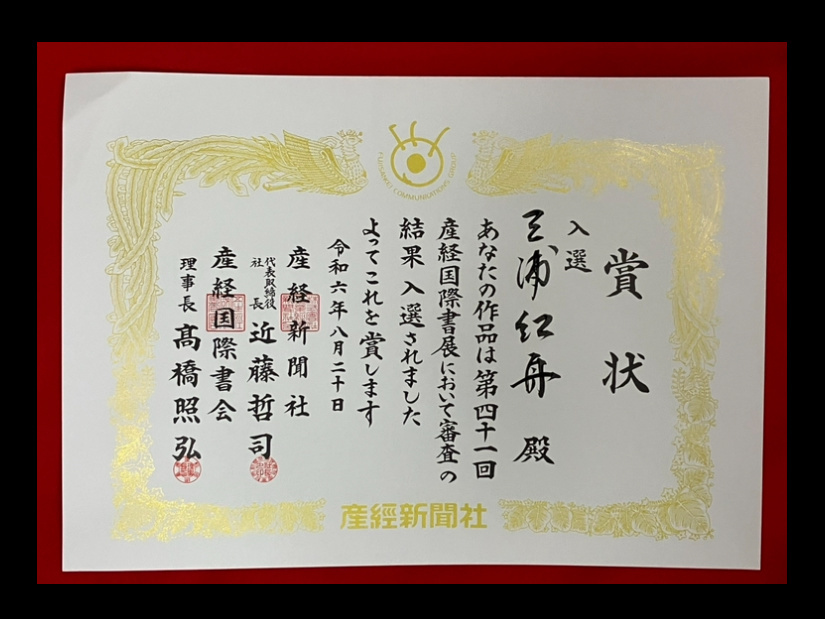 FUJISANKEI COMMUNICATIONS GROUP
賞状
入選
三浦紅舟 殿
あなたの作品は第四十一回
産経国際書展において審査の
結果入選されました
よってこれを賞します
令和六年八月二十日
産経新聞社
代表取締役
社長 近藤哲司
産経国際書会
理事長 髙橋照弘
産經新聞社